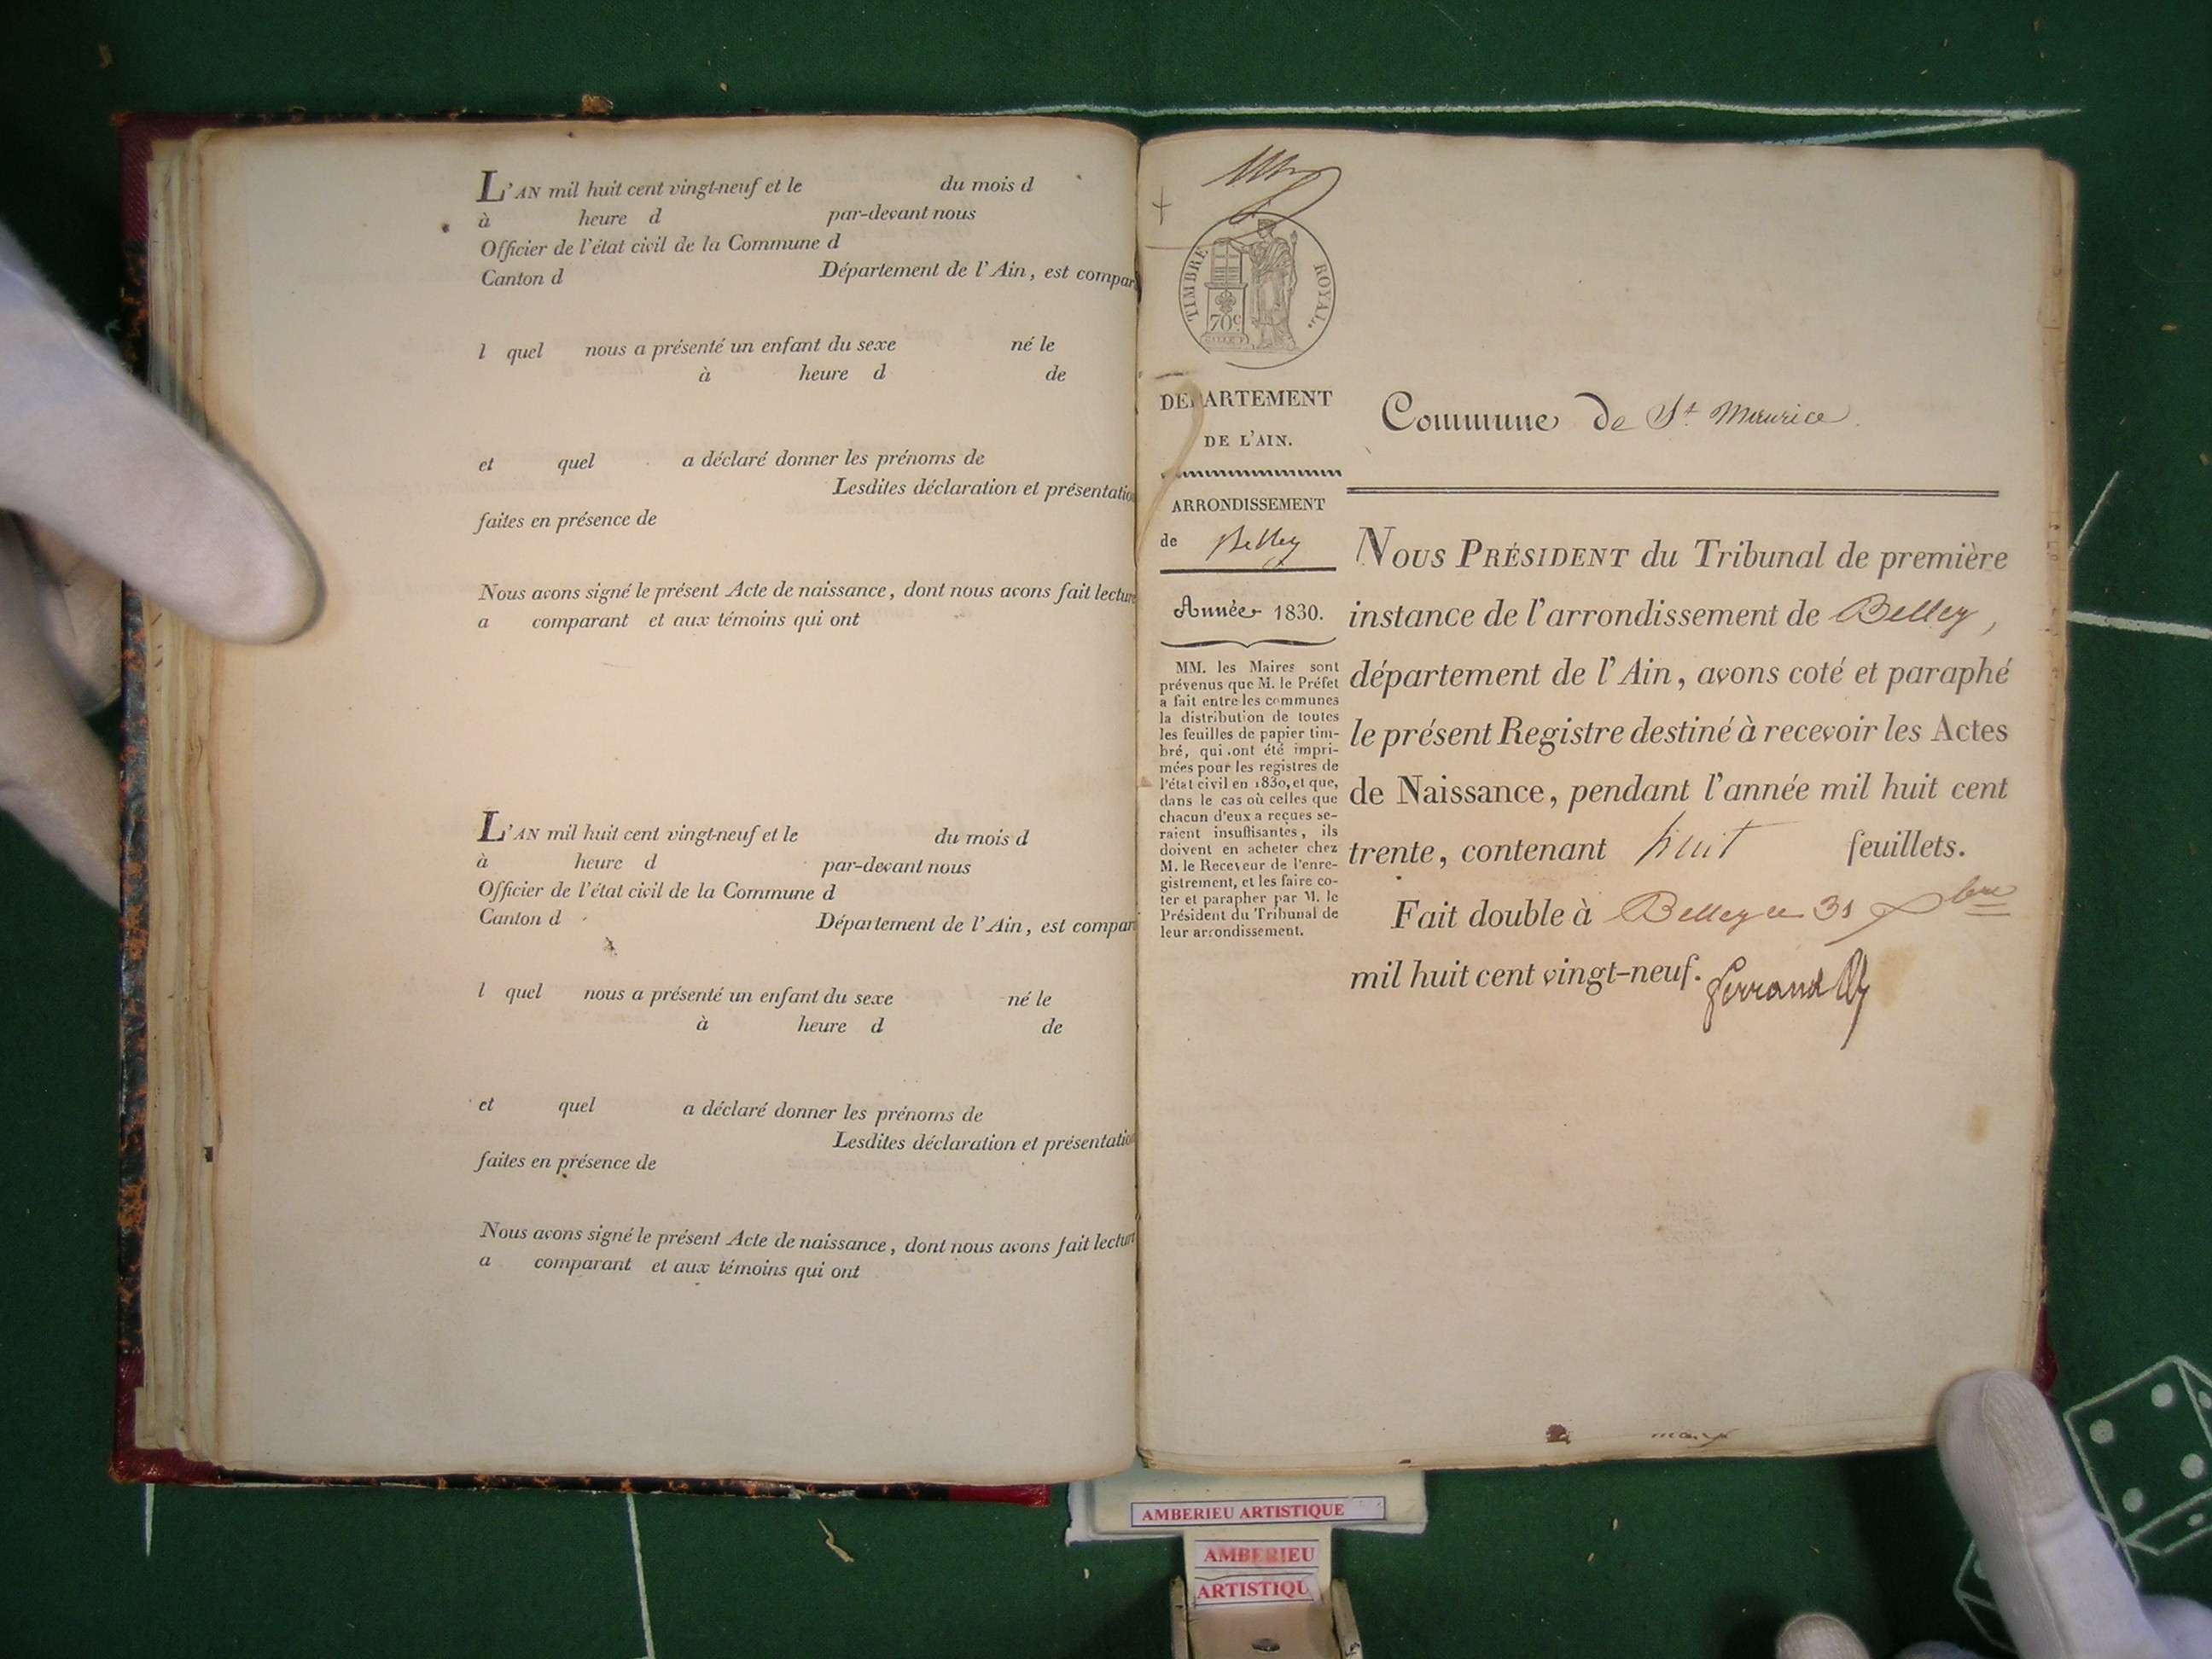 L'AN mil huit cent vingt-neuf et le du mois d
à heure d par-devant nous
Officier de l'état civil de la Commune d
Canton d Département de l'Ain, est compar
l quel nous a présenté un enfant du sexe né le
à heure d de
et quel a déclaré donner les prénoms de
Lesdites déclaration et présentation
faites en présence de
Nous avons signé le présent Acte de naissance, dont nous avons fait lecture
a comparant et aux témoins qui ont
L'AN mil huit cent vingt-neuf et le du mois d
à heure d par-devant nous
Officier de l'état civil de la Commune d
Canton d Département de l'Ain, est compar
l quel nous a présenté un enfant du sexe né le
à heure d de
et quel a déclaré donner les prénoms de
Lesdites déclaration et présentation
faites en présence de
Nous avons signé le présent Acte de naissance, dont nous avons fait lecture
a comparant et aux témoins qui ont
TIMBRE ROYAL
70c
DÉPARTEMENT
DE L'AIN.
ARRONDISSEMENT
de Belley
Année 1830.
MM. les Maires sont
prévenus que M. le Préfet
a fait entre les communes
la distribution de toutes
les feuilles de papier tim-
bré, qui ont été impri-
mées pour les registres de
l'état civil en 1830, et que,
dans le cas où celles que
chacun d'eux a reçues se-
raient insuffisantes, ils
doivent en acheter chez
M. le Receveur de l'enre-
gistrement, et les faire co-
ter et parapher par M. le
Président du Tribunal de
leur arrondissement.
Commune de St. Maurice
NOUS PRÉSIDENT du Tribunal de première
instance de l'arrondissement de Belley,
département de l'Ain, avons coté et paraphé
le présent Registre destiné à recevoir les Actes
de Naissance, pendant l'année mil huit cent
trente, contenant huit feuillets.
Fait double à Belley ce 31 Xbre
mil huit cent vingt-neuf.
AMBERIEU ARTISTIQUE
AMBERIEU
ARTISTIQU